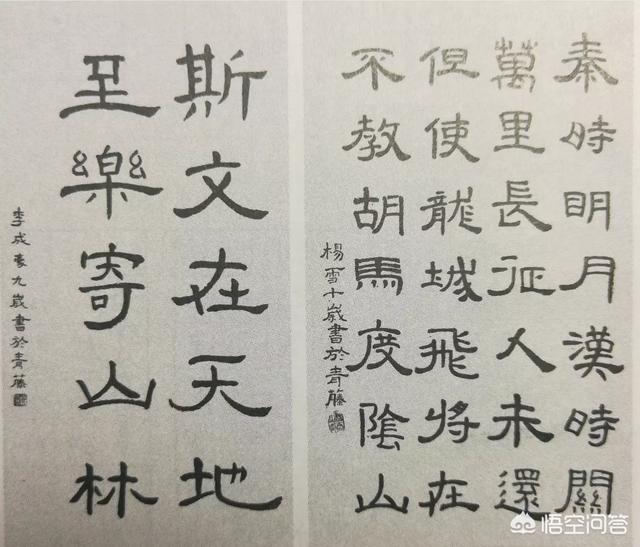 秦時明月漢時關
萬里長征人未還
但使龍城飛將在
不教胡馬度陰山
楊雪十歲書於青藤
斯文在天地
至樂寄山林
李成家九歲書於青藤
悟空问答